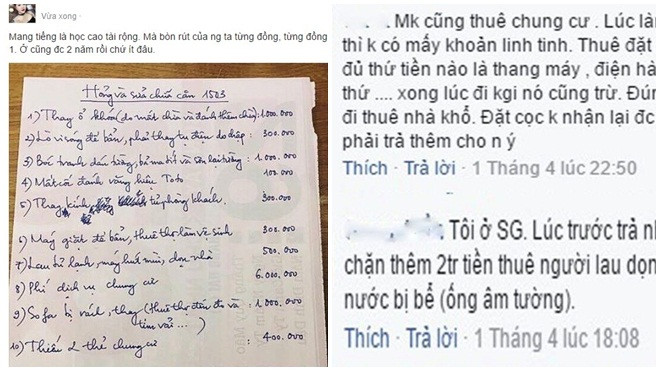 Vừa xong
Mang tiếng là học cao tài rộng. Mà bòn rút của ng ta từng đồng, từng đồng
1. Ở cũng đc 2 năm rồi chứ ít đâu.
Hỏng và sửa chữa căn 1503
1) Thay ổ khóa (do mất chìa và đánh thêm chìa): 1.000.000
2) Lò vi sóng để bẩn, phải thay tụ điện do chập : 300.000
3) Bóc tranh dán tường, bả matít và sơn lại tường : 1.000.000
4) Mất cái đánh văng hiệu Toto 100.000
5) Thay kính tủ phòng khách. 300.000
6) Máy giặt để bẩn, thuê thợ làm vệ sinh 300.000
7) Lau tủ lạnh, máy hút mùi, dọn nhà 500.000
8) Phí dịch vụ chung cư 6.000.000
9) Sofa bị rách, thay (thuê thợ đến đo và : 1.000.000
tìm vải ...)
10) Thiếu 2 thẻ chung cư 400.000
. Mk cũng thuê chung cư . Lúc làm
thì k có mấy khoản linh tinh. Thuê đặt
đủ thứ tiền nào là thang máy , điện hà
thứ .... xong lúc đi kgi nó cũng trừ. Đún
đi thuê nhà khổ. Đặt cọc k nhận lại đc
phải trả thêm cho n ý
Thích · Trả lời · 1 Tháng 4 lúc 22:50
Tôi ở SG. Lúc trước trả nh
chặn thêm 2tr tiền thuê người lau dọn
nước bị bể (ống âm tường).
Thích · Trả lời · 1 Tháng 4 lúc 18:08